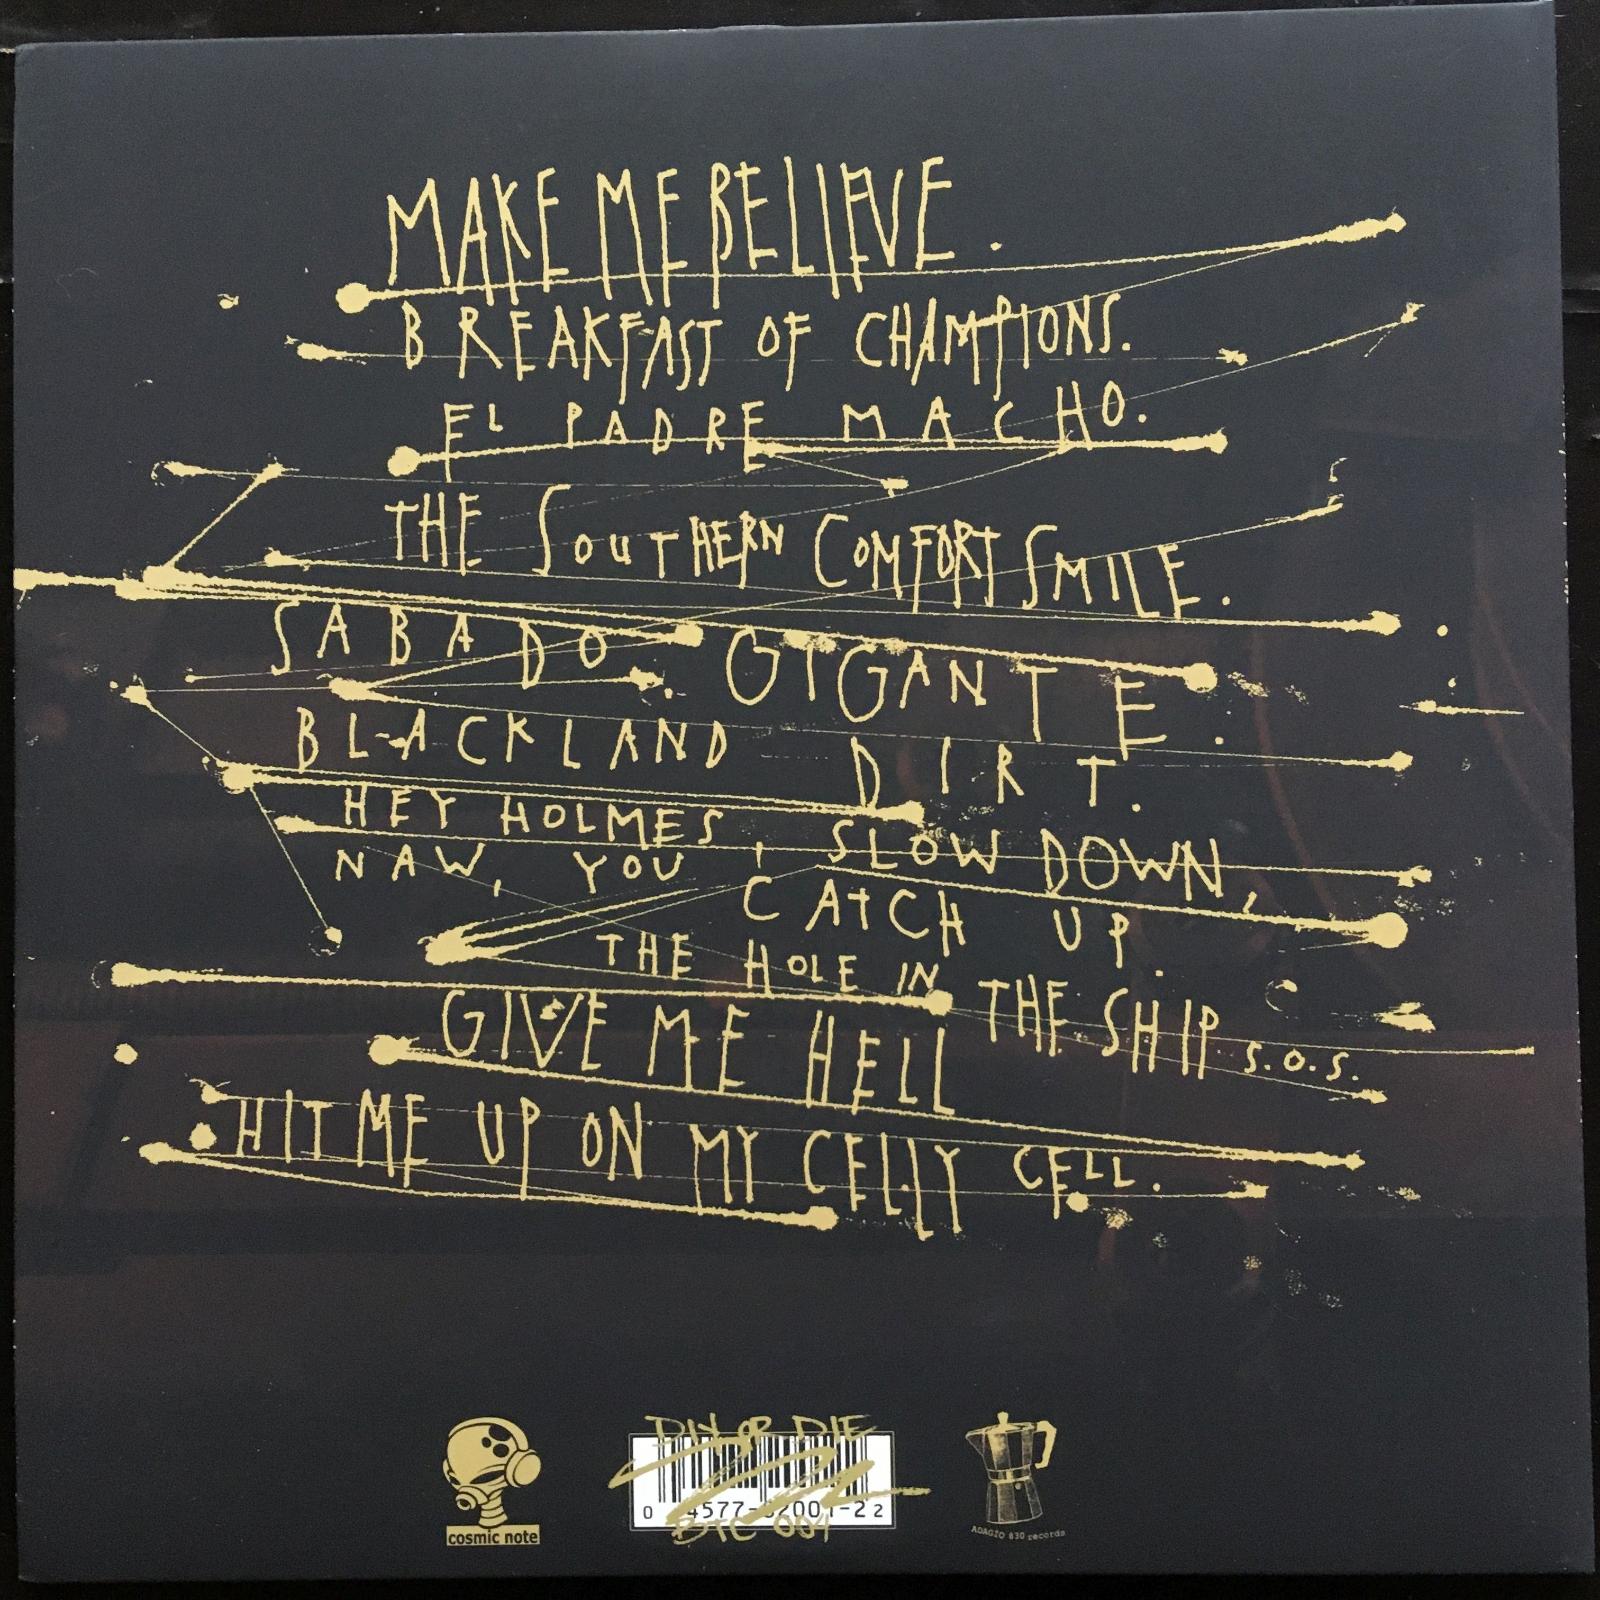 MAKE ME BELIEVE.
BREAKFAST OF CHAMPIONS.
EL PADRE MACHO.
THE SOUTHERN COMFORT SMILE.
SABADO GIGANTE.
BLACKLAND DIRT.
HEY HOLMES, SLOW DOWN,
NAW, YOU CATCH UP.
THE HOLE IN THE SHIP S.O.S.
GIVE ME HELL
HIT ME UP ON MY CELLY CELL.
DIY OR DIE
BTC 001
cosmic note
ADAGIO 830 records